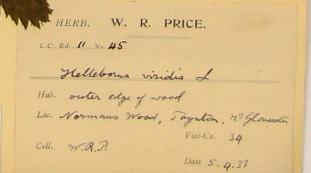 HERB. W. R. PRICE.
L.C., Ed. 11. No. 45
Helleborus viridis L
Hab. outer edge of wood
Loc. Normans Wood, Taynton, nr Gloucester
Vice-Co. 34
Coll. W.R.P.
Date 5.4.33